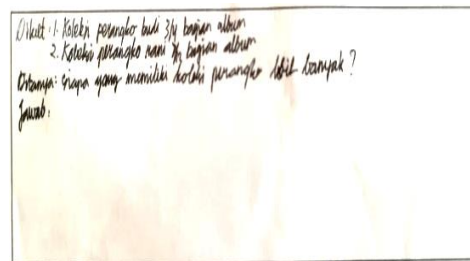 Diket : 1. Koleksi perangko budi 3/4 bagian album
2. Koleksi perangko rani bagian album
Ditanya : siapa yang memiliki koleksi perangko lebih banyak ?
Jawab :